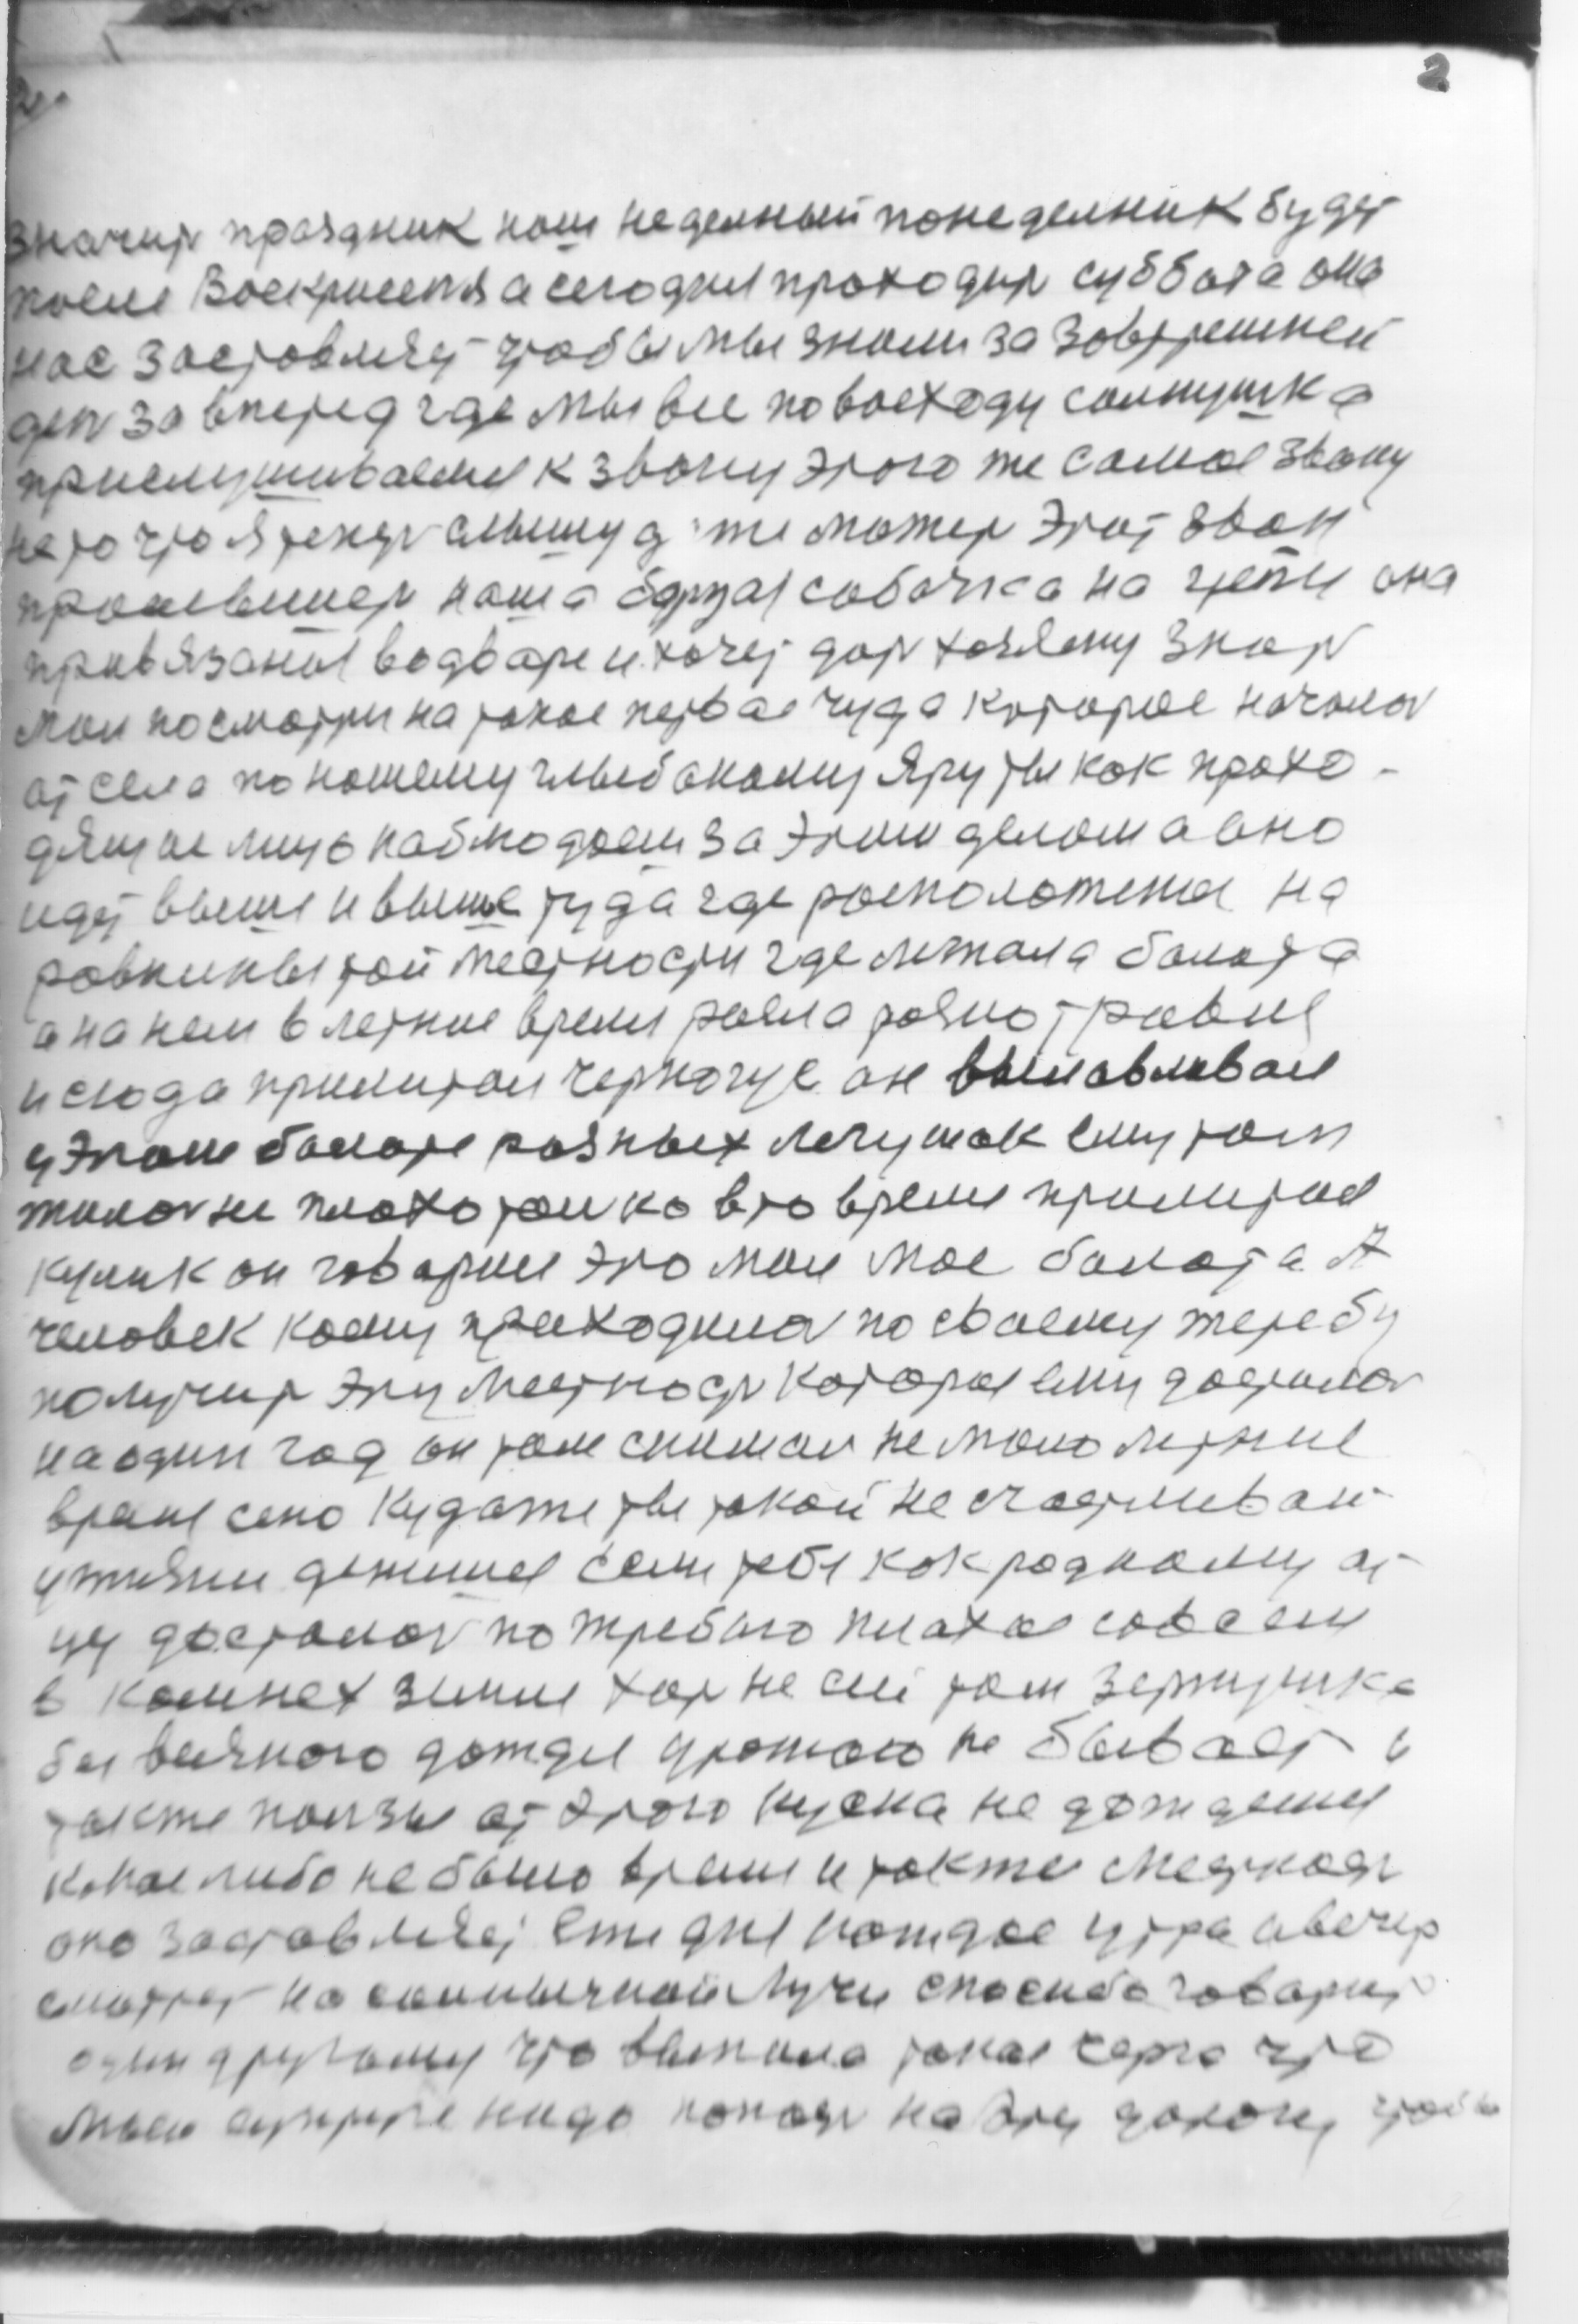 2
значить праздник наш неделный понеделник будет
после Воскрисения а сегодня проходить суббота она
нас заставляет чтобы мы знали за завтрешней
день за вперед где мы все повосходу солнушка
прислушиваемся к звону этого же самое звону
не то что я теперь слышу даже может этот звон
наша собачка на цепи она
привязаная водваре и хочет дать хозяену знать
мол посмотри на такое первае чуда которое началось
от села по нашему глыбокому Яру ты как прохо-
дящие лицо наблюдаеш за этим делом а оно
идет выше и выше туда где росположеные на
ровнины той местности где лежала болота
а на нем в летние время росла разнотравия
и сюда прилитал черногус он вылавливал
у этом болоте разных легушак ему там
жилось не плохо толко в то время прилитал
кулик он говорил это мол мое болота А
человек кому приходилось по своему жеребу
получить эту местность которая ему досталось
на один год он там снимал не мало летние
время сено Куда же ты такой не счастливай
у жизни денишся если тебе как родному от
цу досталось по жребию плахое совсем
в камнех зимля хоть не сей там зернушка
без всякого дождя урожаю не бывает и
также ползы от этого куска не дождешся
какое либо не было время и также местность
оно заставляет еже дня каждое утра и вечер
смотреть на солнычной лучи спасибо говорит
один другому что выпала такая черга что
надо попасть на эту дорогу чтобы